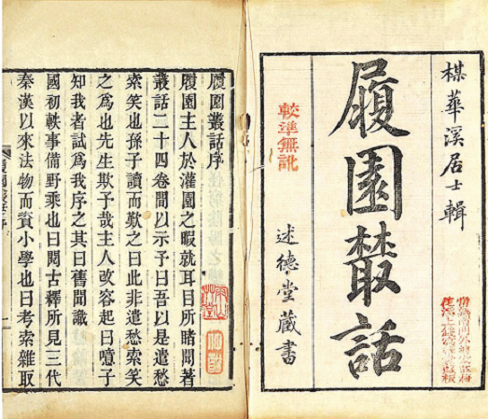 楳華溪居士輯
履園叢話
較準無訛
述德堂藏書
履園叢話序
履園主人於灌園之暇就耳目所睹聞著
叢話二十四卷間以示予曰吾以是遣愁
索笑也孫子讀而歎之曰此非遣愁索笑
之為也先生欺予哉主人改容起曰噫子
知我者試為我序之其曰舊聞識
國初軼事備野乘也曰閱古釋所見三代
秦漢以來法物而資小學也曰考索雜取